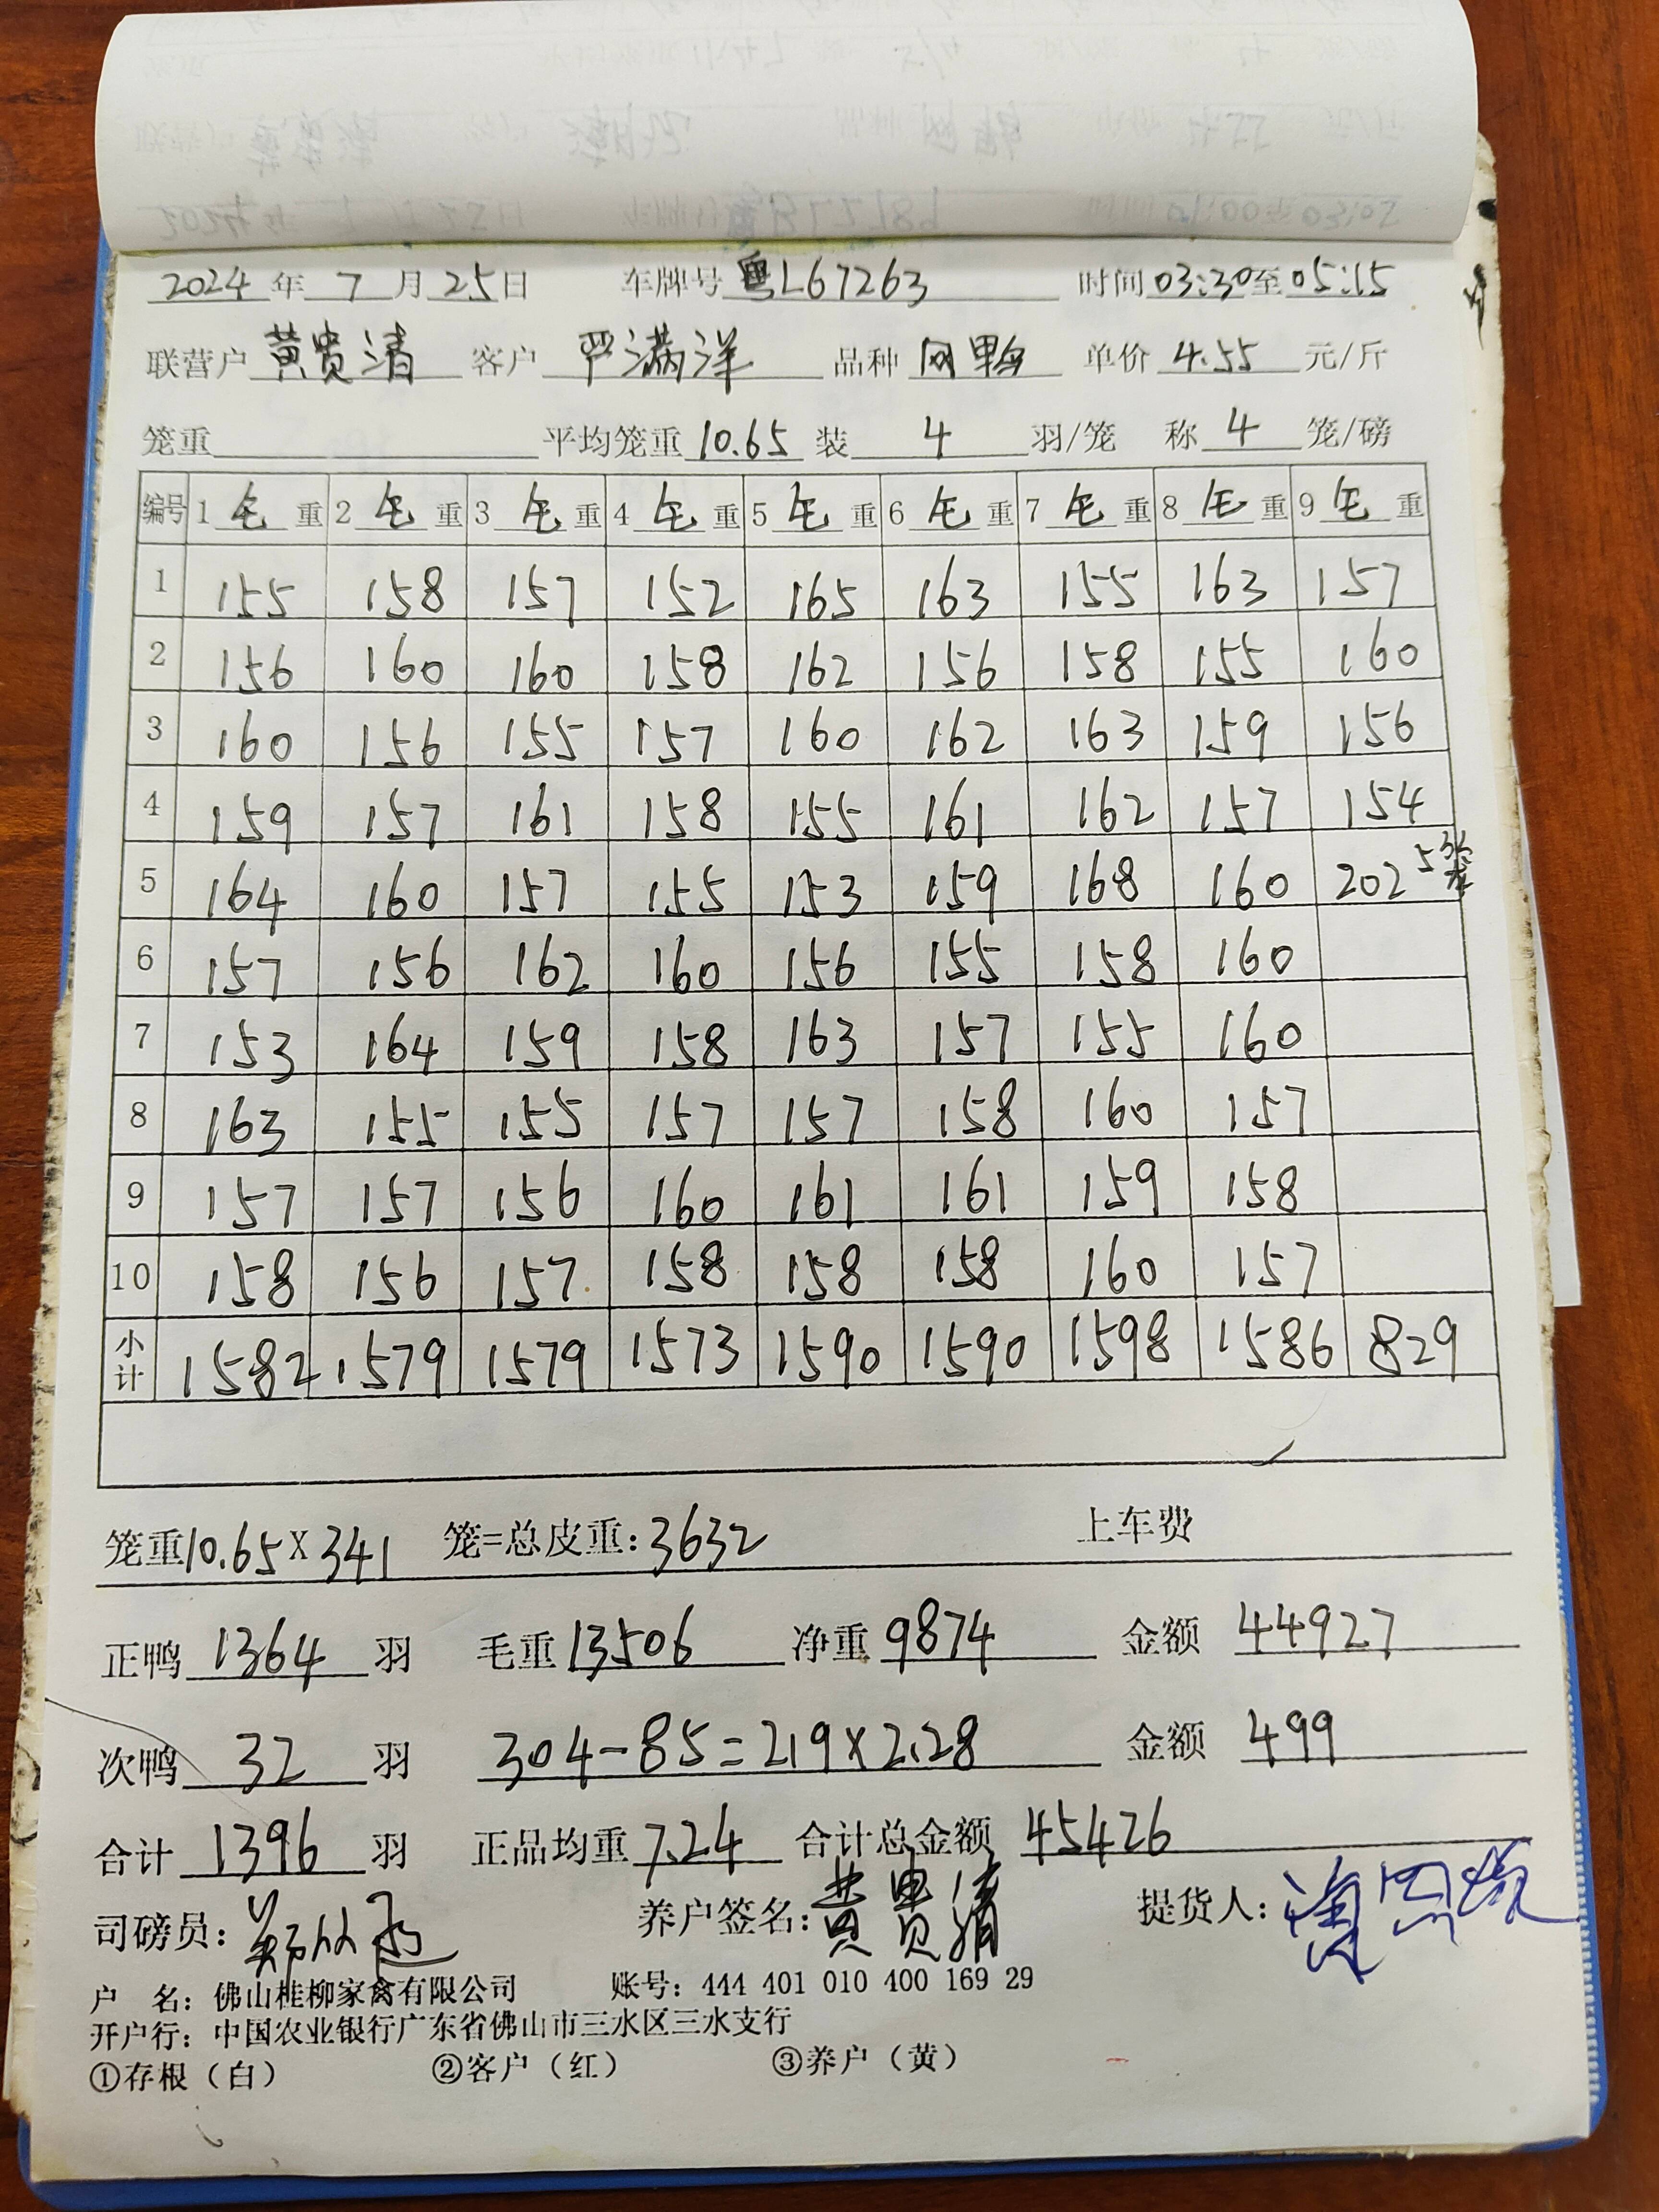 2024年7月25日 车牌号粤L67263 时间03:30至05:15
联营户黄贵清 客户严满洋 品种网鸭 单价4.55元/斤
笼重 平均笼重10.65装4羽/笼 称4笼/磅
编号 1毛重 2毛重 3毛重 4毛重 5毛重 6毛重 7毛重 8毛重 9毛重
1 155 158 157 152 165 163 155 163 157
2 156 160 160 158 162 156 158 155 160
3 160 156 155 157 160 162 163 159 156
4 159 157 161 158 155 161 162 157 154
5 164 160 157 155 153 159 168 160 202 5
6 157 156 162 160 156 155 158 160
7 153 164 159 158 163 157 155 160
8 163 155 155 157 157 158 160 157
9 157 157 156 160 161 161 159 158
10 158 156 157 158 158 158 160 157
小计 1582 1579 1579 1573 1590 1590 1598 1586 829
笼重10.65×341 笼=总皮重:3632 上车费
正鸭1364羽 毛重13506 净重9874 金额44927
次鸭32羽 304-85=219×2.28 金额499
合计1396羽 正品均重7.24 合计总金额45426
司磅员: 养户签名:黄贵清 提货人:
户 名:佛山桂柳家禽有限公司 账号:444 401 010 400 169 29
开户行:中国农业银行广东省佛山市三水区三水支行
①存根(白) ②客户(红) ③养户(黄)